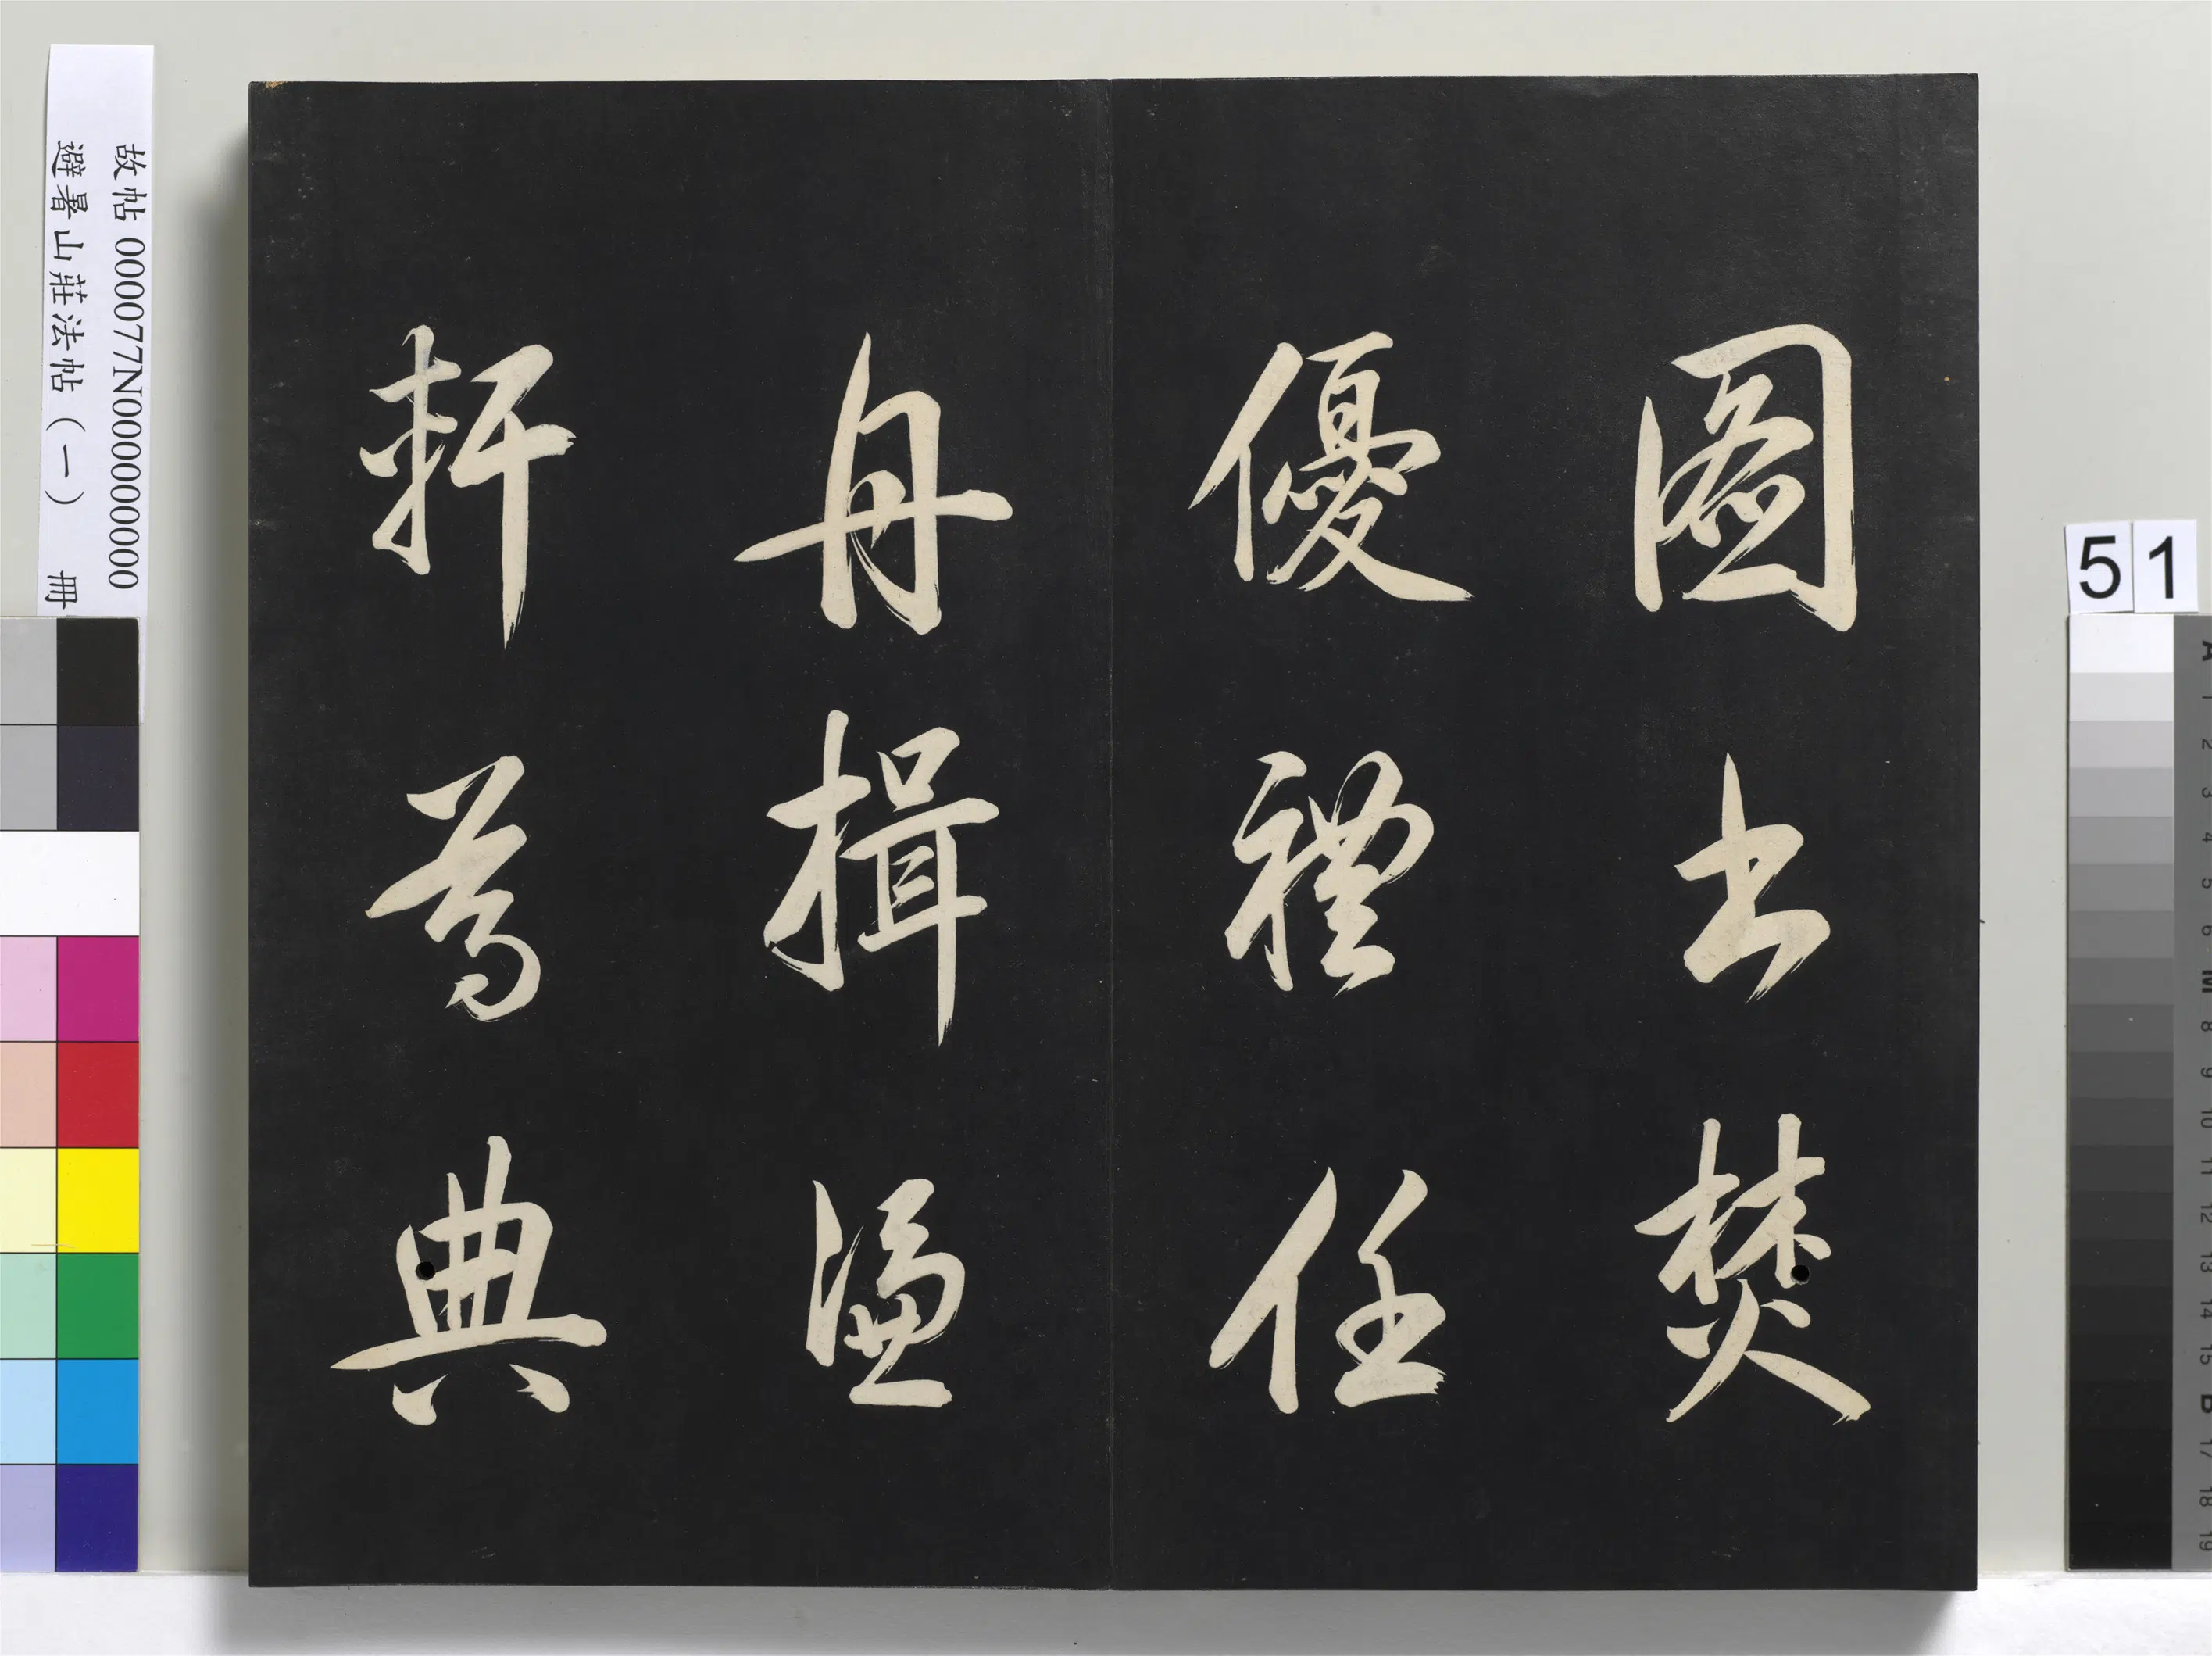 圖出焚
優禮任
舟揖
軒為典
故帖 000077N000000000
避暑山莊法帖（一） 冊
51
A 1 2 3 4 5 6 M 8 9 10 11 12 13 14 15 B 17 18 19